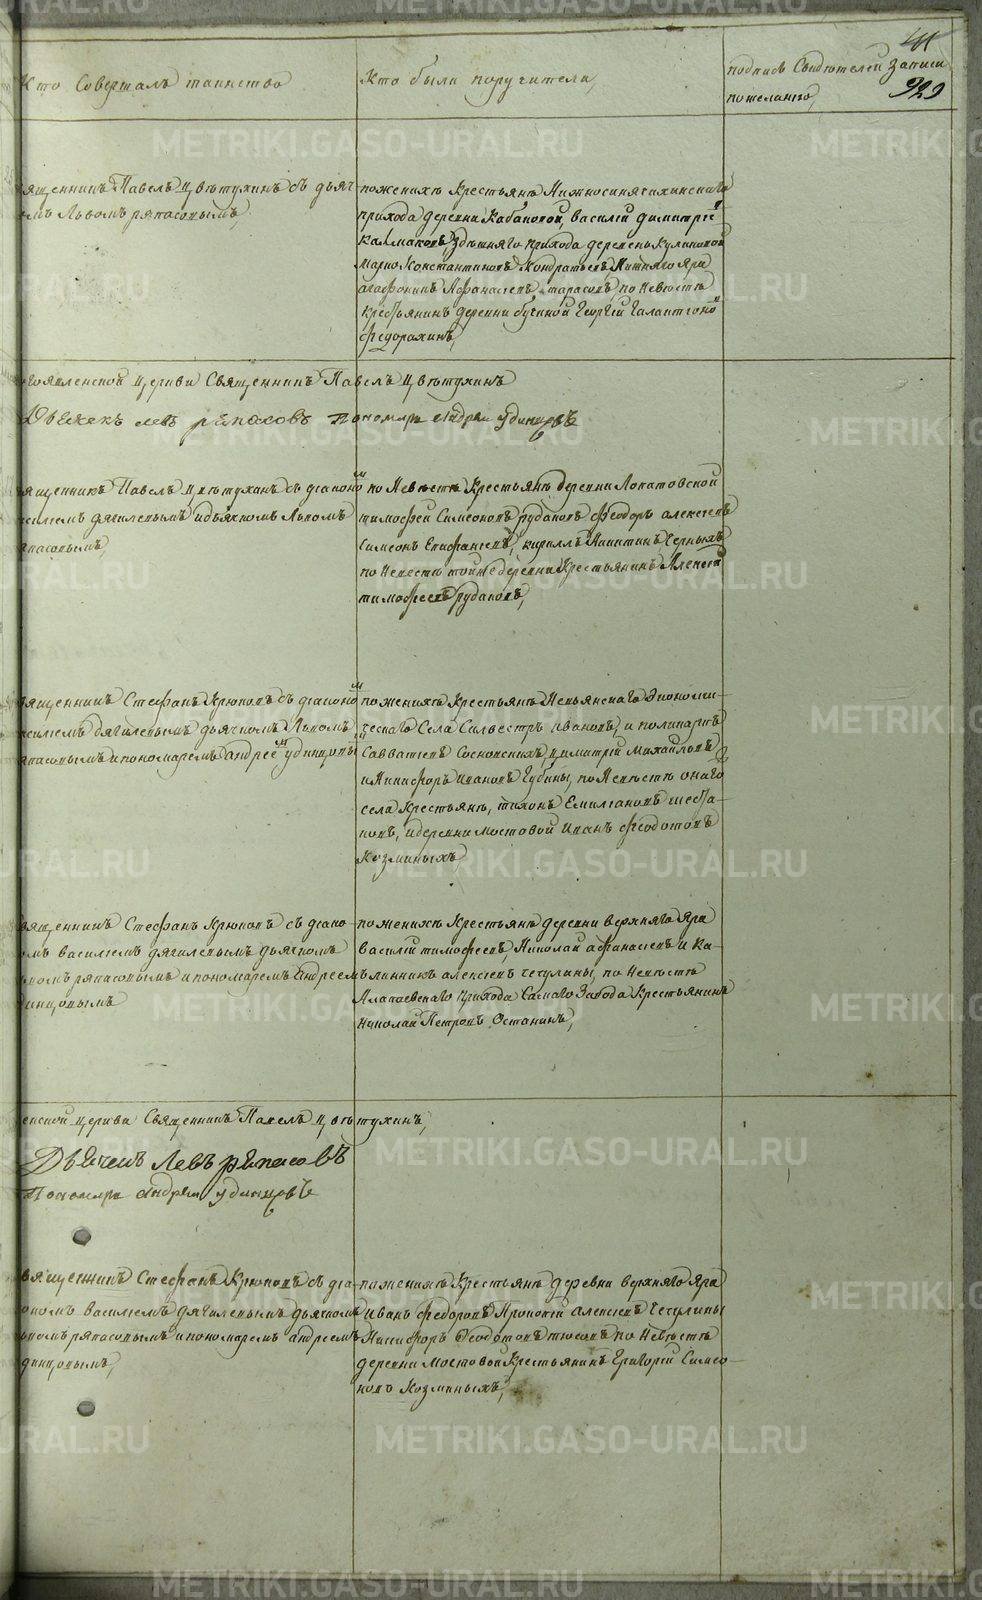 41
Кто Совершалъ таинство
Кто были поручители,
подпись Свидетелей Записи
пожеланію,
929
ященникъ Павелъ Цвѣтухинъ съ дьяч-
омъ Львомъ ряпасовымъ,
по женихѣ Крестьянѣ Нижносинячихинскаго
прихода деревни Кабановой, василій димитріе
Калмаковъ, здѣшняго прихода деревень Куликовой
Марко Константиновъ Кондратьевъ Нижняго Яра
агафоникъ Афанасьевъ тарасовъ, по Невѣстѣ
крестьянинъ деревни бучиной Георгій Галактіоно
Федорахинъ,
огоявленской Церкви Священникъ Павелъ Цвѣтухинъ
Дьячекъ левъ ряпасовъ Пономарь андрей удинцовъ
ященникъ Павелъ Цвѣтухинъ съ діаконом
силіемъ дягилевымъ и дьячкомъ Львомъ
япасовымъ,
по Невѣстѣ Крестьянѣ деревни Лопатовской
тимофей Симеоновъ рудаковъ феодоръ алексеевъ
Симеонъ Епифантьевъ, кириллъ Никитинъ Черныхъ
по Невестѣ тойже деревни Крестьянинъ Алексей
тимофеевъ рудаковъ,
вященникъ Стефанъ Крюковъ съ діаконом
асиліемъ дягилевымъ дьячкомъ Львомъ
япасовымъ и пономаремъ андреем удинцовы
по женихѣ Крестьянѣ Невьянскаго Экономи-
ческаго Села Силвестръ ивановъ, и поликарпъ
Савватеевъ Сосновскихъ, димитрій Михайловъ
и Никифоръ ивановъ Губины, по Невѣстѣ онаго
села Крестьянѣ, тихонъ Емилиановъ шеста-
ковъ, и деревни мостовой Иванъ феодотовъ
Козминыхъ,
вященникъ Стефанъ Крюковъ съ діако-
омъ василіемъ дягилевымъ дьячкомъ
ьвомъ ряпасовымъ и пономаремъ Андреемъ
динцовымъ
по женихѣ Крестьянѣ деревни верхняго Яра
василій тимофеевъ, Николай афанасьевъ и Ка-
линникъ алексеевъ чечулины, по Невѣстѣ
Алапаевскаго прихода Самаго Завода Крестьянинъ
Николай Петровъ Останинъ,
енской Церкви Священникъ Павелъ Цвѣтухинъ,
Дьячекъ Левъ ряпасовъ
Пономарь андрей удинцовъ
вященникъ Стефанъ Крюковъ съ діа-
ономъ василіемъ дягилевымъ дьячкомъ
ьвомъ ряпасовымъ и пономаремъ андреемъ
динцовымъ,
по женихѣ Крестьянѣ деревни верхняго Яра
Иванъ федоровъ Прокопій алексеевъ Чечулины
Никифоръ Феодотовъ тюсовъ по Невѣстѣ
деревни мостовой Крестьянинъ Григорій Симео-
новъ Козминыхъ,
METRIKI.GASO-URAL.RU